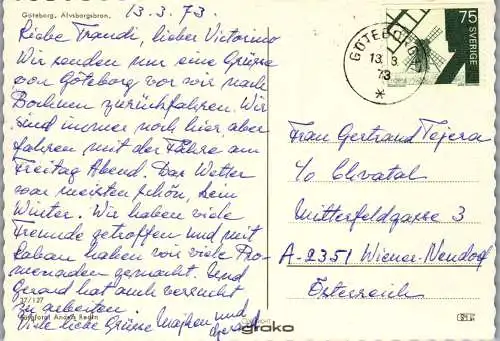 Göteborg. Älvsborgsbron.
13.3.73.
Liebe Traudi, lieber Victorino
Wir senden nur eine Grüsse
von Göteborg vor wir nach
Bochum zurückfahren. Wir
sind immer noch hier, aber
fahren mit der Fähre am
Freitag Abend. Das Wetter
war meisten schön, kein
Winter. Wir haben viele
Freunde getroffen und mit
haben wir viele Pro-
menaden gemacht. Und
Gerard hat auch versucht
zu arbeiten.
Viele liebe Grüsse und
37/127
Färgfoto: Anders Redin
grako
75
SVERIGE
GÖTEBORG
13. 3.
73
Frau Gertrand Tejera
c/o Chvatal
Mitterfeldgasse 3
A-2351 Wiener-Neudorf
Österreich